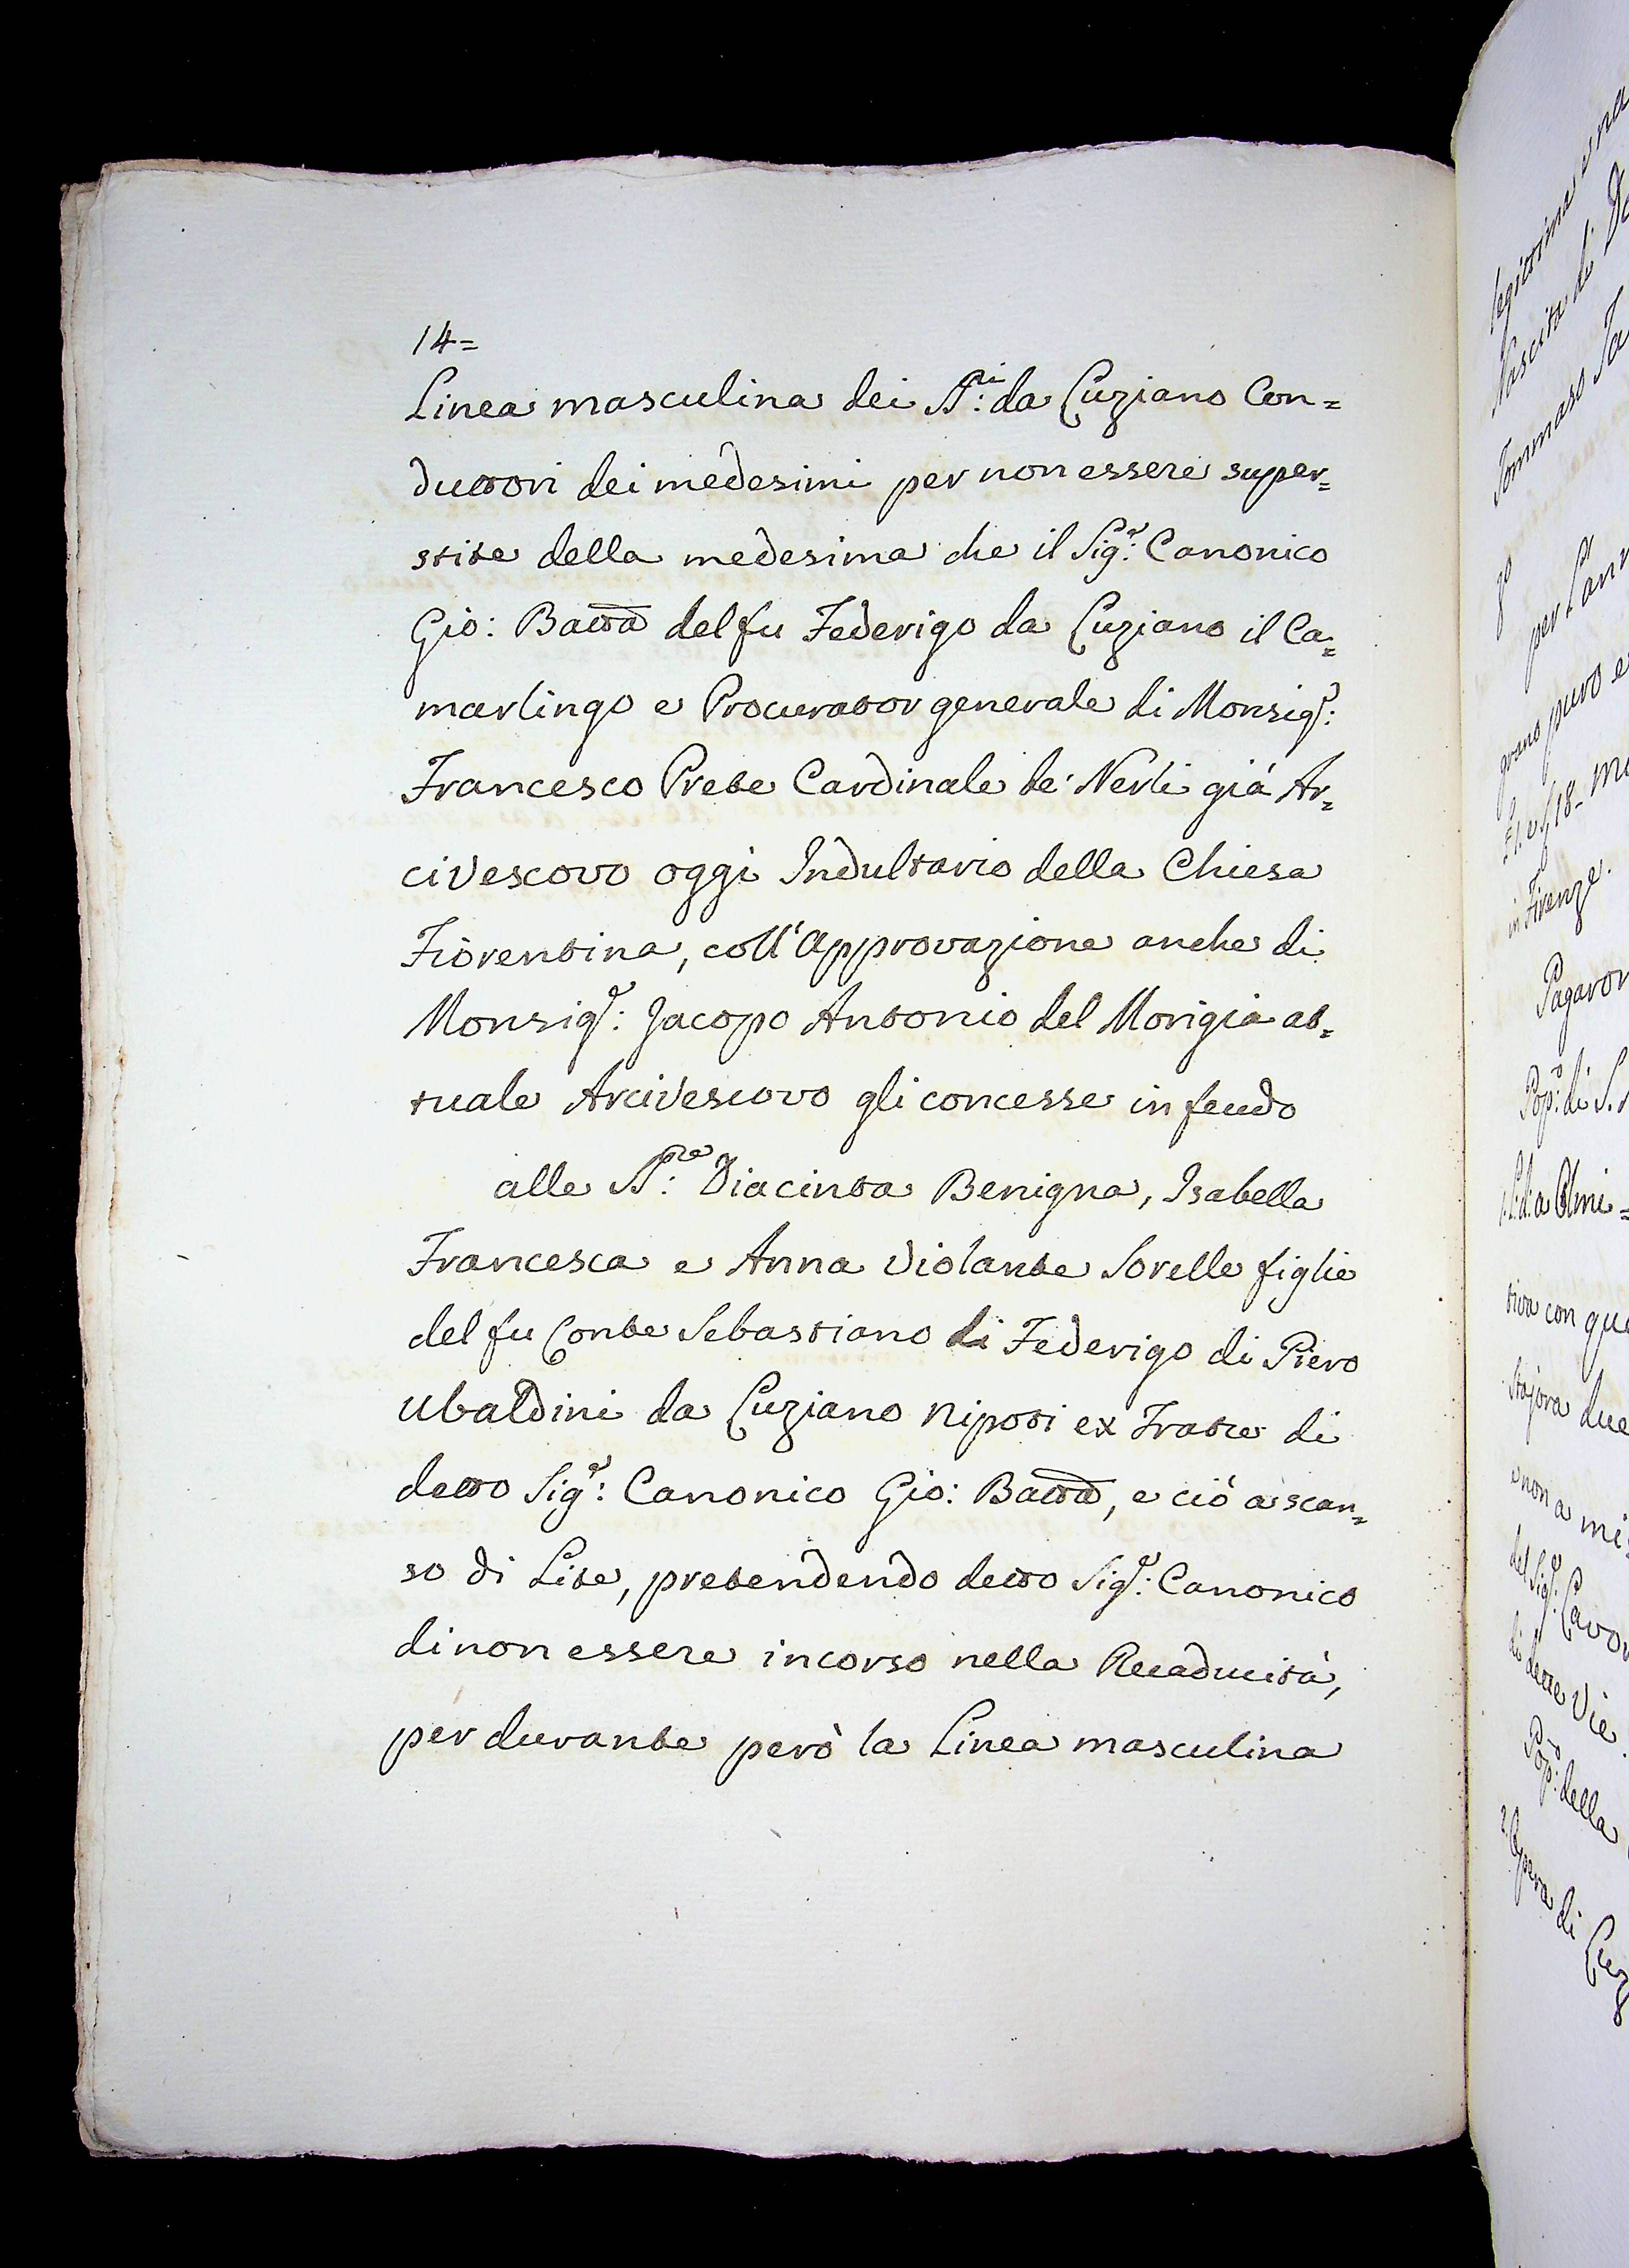 14=
Linea masculina dei SS:ri da Luziano Con=
duttori dei medesimi per non essere super=
stite della medesima che il Sigr: Canonico
Gio: Batta del fu Federigo da Luziano il Ca=
marlingo e Procurator generale di Monsigr:
Francesco Prete Cardinale de' Nerli già Ar=
civescovo oggi Indultario della Chiesa
Fiorentina, coll'approvazione anche di
Monsigr: Jacopo Antonio del Morigia at=
tuale Arcivescovo gli concesse in feudo
alle SS:re Diacinta Benigna, Isabella
Francesca e Anna Violante Sorelle figlie
del fu Conte Sebastiano di Federigo di Piero
Ubaldini da Luziano Nipoti ex Fratre di
detto Sigr: Canonico Gio: Batta, e ciò a scan=
so di Lite, pretendendo detto Sigr: Canonico
di non essere incorso nella Recaducità,
per durante però la Linea masculina
legittima e na
Nascita di
Tommaso
per
grano puro e
18-
in Firenze.
Pagaron
Popo: di S.
tiva con que
Stajora due
e non a mi
del Sigr:
di dette Vie
Popo: della
Opera di